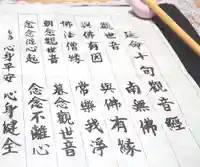 延命十句觀音經
觀世音 南無佛
與佛有因 與佛有緣
佛法僧緣 常樂我淨
暮念觀世音
念念從心起 念念不離心
心身平安 心身健全